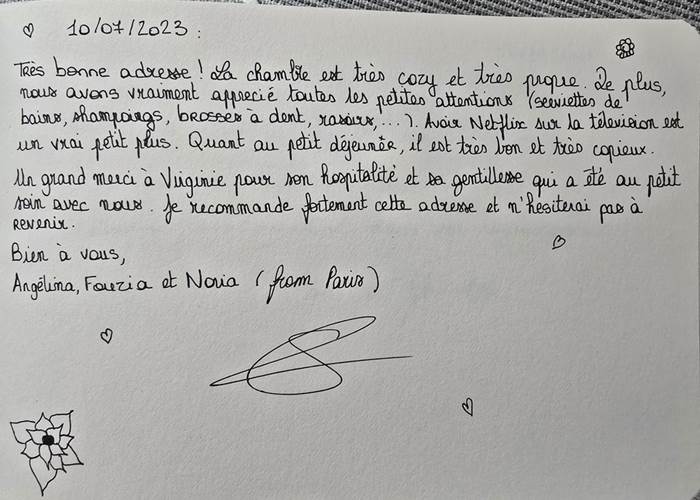 10/07/2023 :
Très bonne adresse ! La chambre est très cozy et très propre. De plus,
nous avons vraiment apprecié toutes les petites attentions (serviettes de
bains, shampoings, brosses à dent, rasoirs, ...). Avoir Netflix sur la télévision est
un vrai petit plus. Quant au petit déjeunée, il est très bon et très copieux.
Un grand merci à Virginie pour son hospitalité et sa gentillesse qui a été au petit
soin avec nous. Je recommande fortement cette adresse et n'hésiterai pas à
revenir.
Bien à vous,
Angélina, Fouzia et Noria (from Paris)